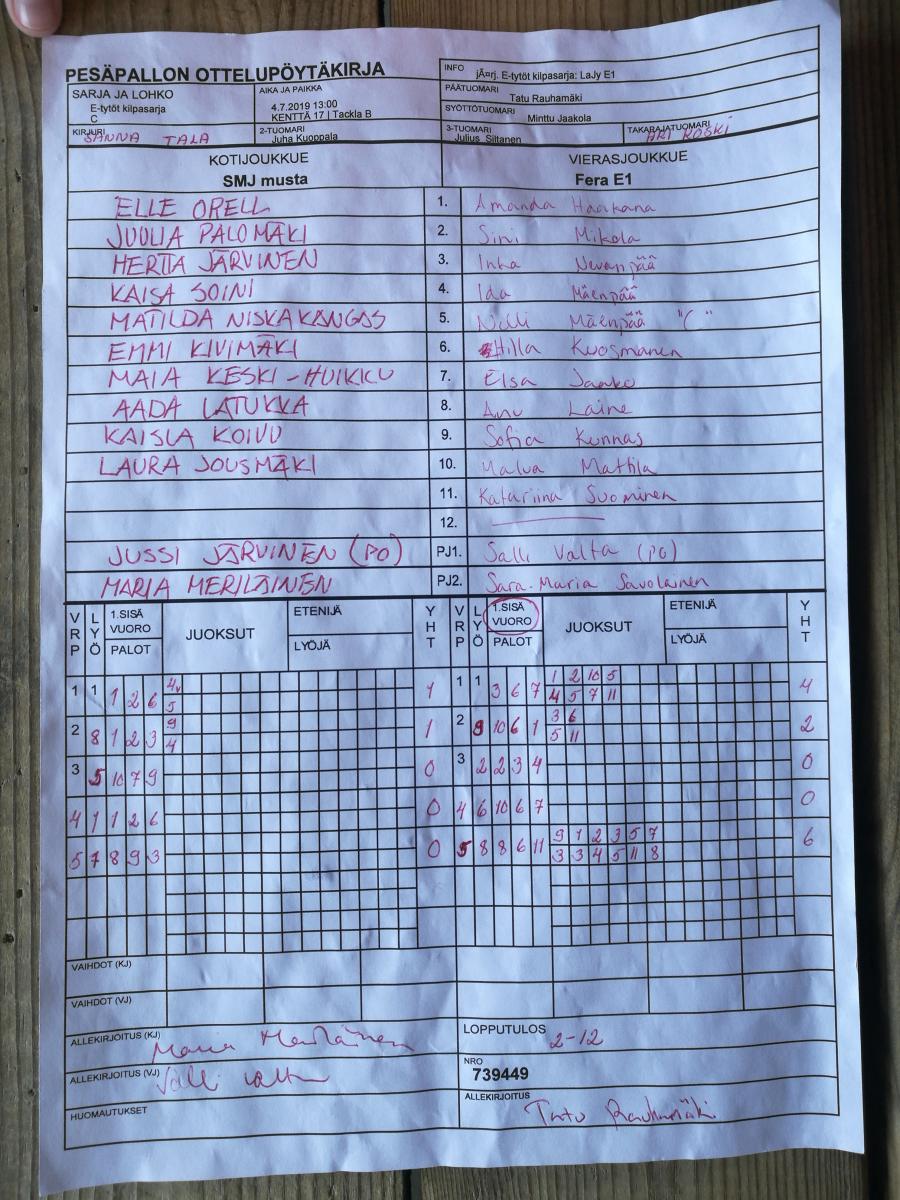 PESÄPALLON OTTELUPÖYTÄKIRJA
INFO jÃ¤rj. E-tytöt kilpasarja: LaJy E1
SARJA JA LOHKO
E-tytöt kilpasarja
C
AIKA JA PAIKKA
4.7.2019 13:00
KENTTÄ 17 | Tackla B
PÄÄTUOMARI
Tatu Rauhamäki
SYÖTTÖTUOMARI
Minttu Jaakola
KIRJURI
SANNA TALA
2-TUOMARI
Juha Kuoppala
3-TUOMARI
Julius Siltanen
TAKARAJATUOMARI
ARI KOSKI
KOTIJOUKKUE VIERASJOUKKUE
SMJ musta Fera E1
ELLE ORELL 1. Amanda Haakana
JUULIA PALOMÄKI 2. Sini Mikola
HERTTA JÄRVINEN 3. Inka Nevanpää
KAISA SOINI 4. Ida Mäenpää
MATILDA NISKAKANGAS 5. Nelli Mäenpää "C"
EMMI KIVIMÄKI 6. Hilla Kuosmanen
MAIA KESKI-HUIKKU 7. Elsa Jaako
AADA LATUKKA 8. Anu Laine
KAISLA KOIVU 9. Sofia Kunnas
LAURA JOUSMÄKI 10. Malva Mattila
11. Katariina Suominen
12.
JUSSI JÄRVINEN (PO) PJ1. Salli Valta (PO)
MARIA MERILÄINEN PJ2. Sara-Maria Savolainen
VRP LYÖ 1.SISÄ VUORO PALOT JUOKSUT ETENIJÄ LYÖJÄ YHT VRP LYÖ 1.SISÄ VUORO PALOT JUOKSUT ETENIJÄ LYÖJÄ YHT
1 1 1 2 6 4v 1 1 1 3 6 7 1 2 10 5 4
5 4 5 7 11
2 8 1 2 3 9 1 2 9 10 6 1 3 6 2
4 5 11
3 5 10 7 9 0 3 2 2 3 4 0
4 1 1 2 6 0 4 6 10 6 7 0
5 7 8 9 3 0 5 8 8 6 11 9 1 2 3 5 7 6
3 3 4 5 11 8
VAIHDOT (KJ)
VAIHDOT (VJ)
ALLEKIRJOITUS (KJ) Maria Meriläinen
LOPPUTULOS 2-12
ALLEKIRJOITUS (VJ) Salli Valta
NRO
739449
HUOMAUTUKSET
ALLEKIRJOITUS
Tatu Rauhamäki